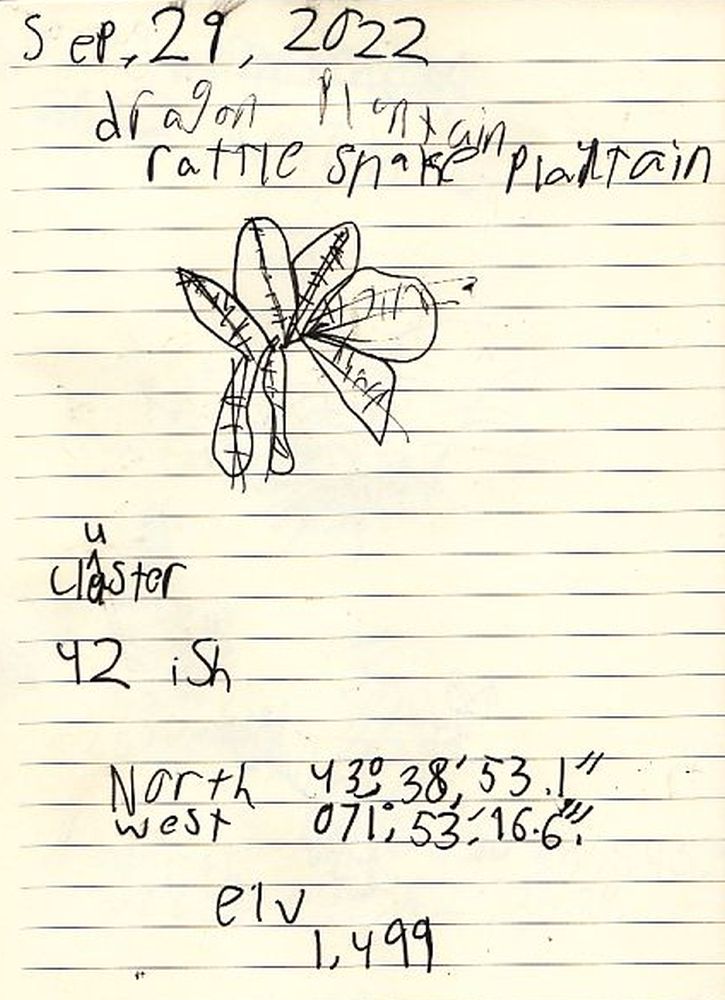 Sep, 29, 2022
dragon Plantain
rattle snake plaintain
u
claster
42 ish
North 43° 38' 53.1"
west 071° 53' 16.6"
elv
1,499